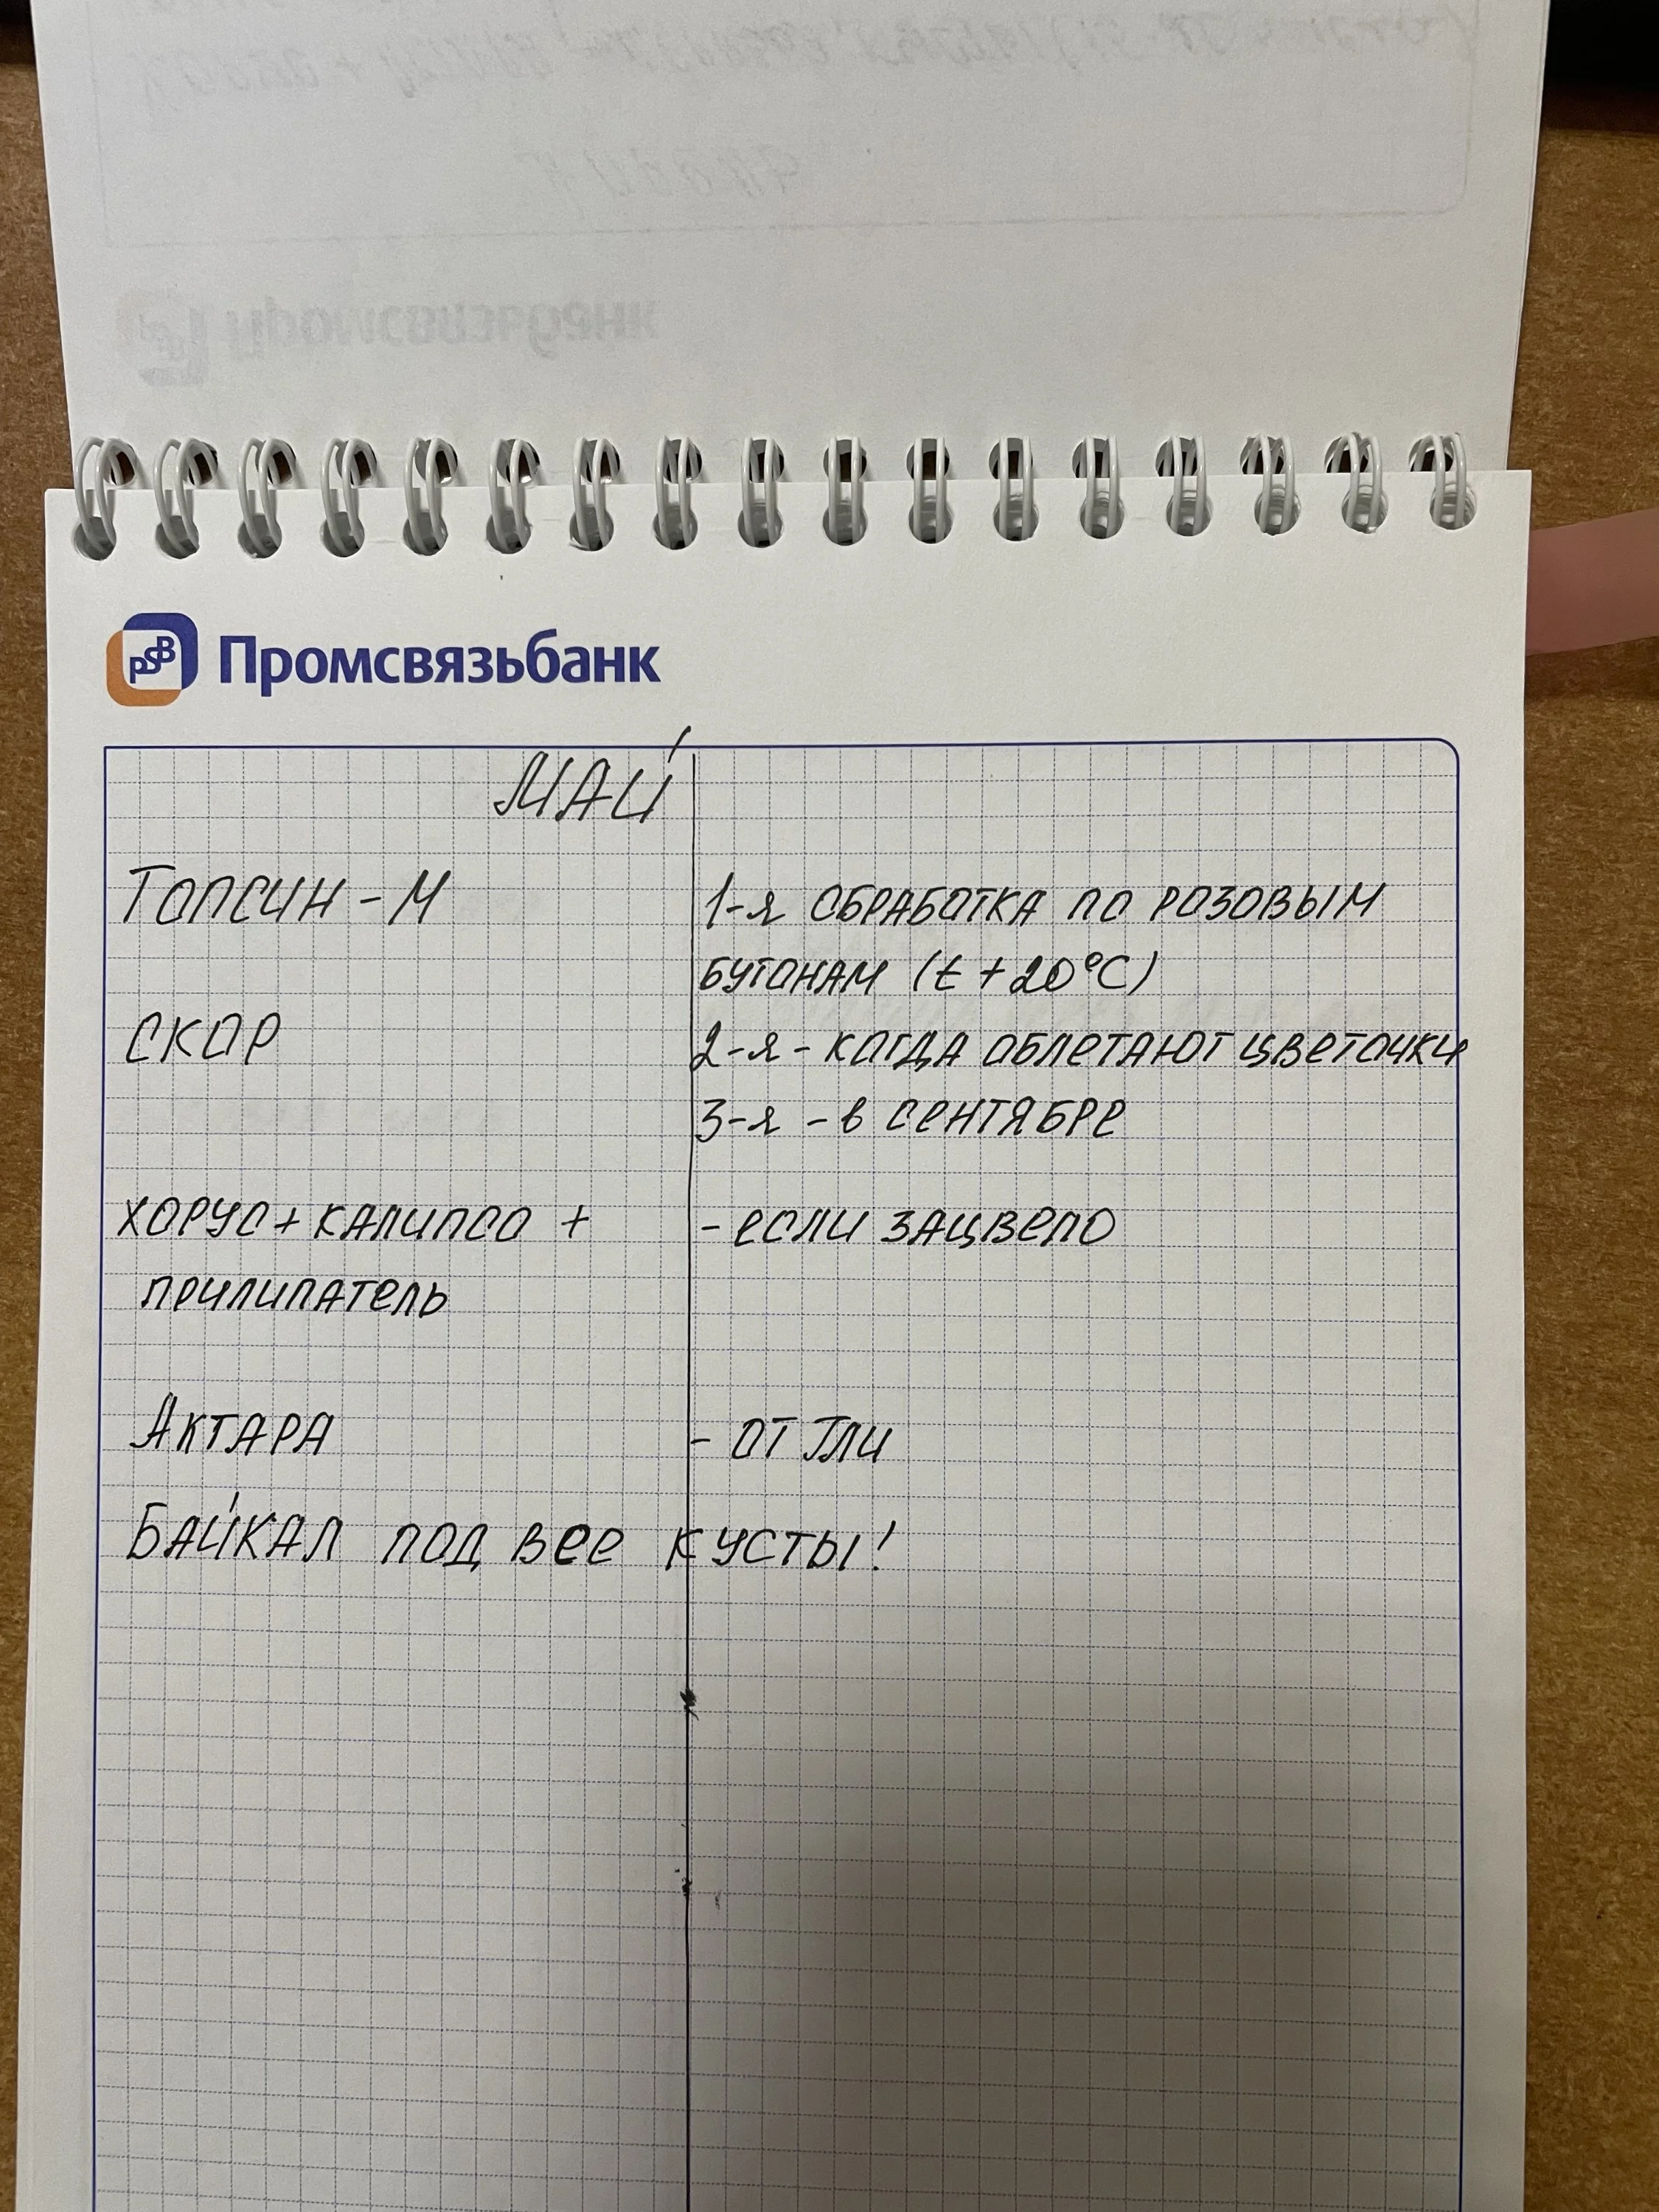 Промсвязьбанк
PSB Промсвязьбанк
МАЙ
ТОПСИН-М
1-я ОБРАБОТКА ПО РОЗОВЫМ
БУТОНАМ (t +20°C)
СКОР
2-я - КОГДА ОБЛЕТАЮТ ЦВЕТОЧКИ
3-я - в СЕНТЯБРЕ
ХОРУС + КАЛИПСО +
- если ЗАЦВЕЛО
ПРИЛИПАТЕЛЬ
АКТАРА
- ОТ ТЛИ
БАЙКАЛ ПОД ВСЕ КУСТЫ!